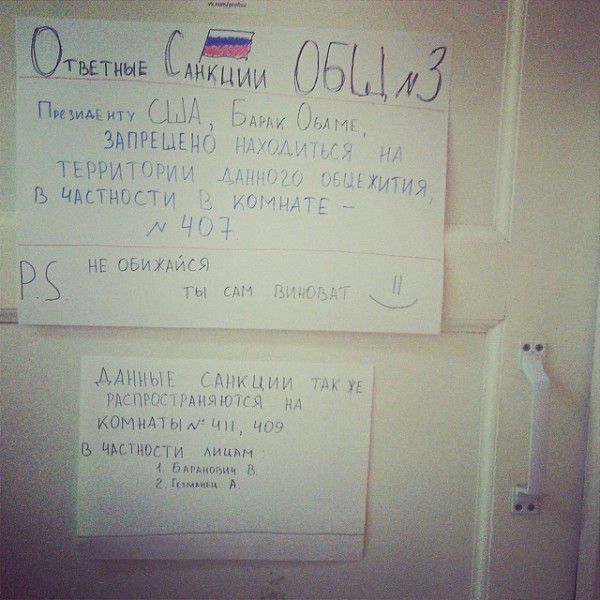 Ответные Санкции ОБЩ №3
Президенту США, Барак Обаме,
ЗАПРЕЩЕНО НАХОДИТЬСЯ НА
ТЕРРИТОРИИ ДАННОГО ОБЩЕЖИТИЯ,
В ЧАСТНОСТИ В КОМНАТЕ –
№ 407.
P.S. НЕ ОБИЖАЙСЯ
ТЫ САМ ВИНОВАТ
ДАННЫЕ САНКЦИИ ТАК ЖЕ
РАСПРОСТРАНЯЮТСЯ НА
КОМНАТЫ № 411, 409
В ЧАСТНОСТИ ЛИЦАМ
1. БАРАНОВИЧ В.
2. ГЕТМАНЕЦ А.